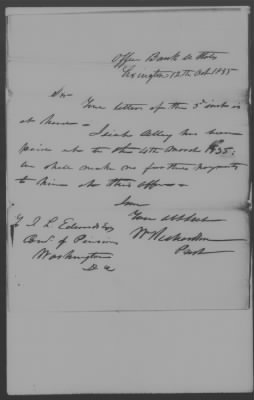 Office Bank U States
Lexington 12th Oct. 1835
Sir
Your letter of the 5th inst is
at hand - Isiah Abbey has been
paid up to the 4th March 1835;
we shall make no further payments
to him at this Office -
I am
Your Obt Sert
W Richardson
Prest
To J L Edwards Esq
Com. of Pensions
Washington
D C